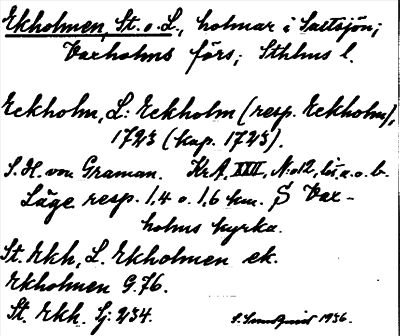 Ekholmen, St. o. L., holmar i Saltsjön;
Vaxholms förs; Sthlms l.
Eckholm, L: Eckholm (resp. Eckholm),
1723 (kop. 1725).
S. H. von Graman. KrA, XXII, N:o 12, lös, a. o. b.
Läge resp. 1,4 o. 1,6 km. S Vax-
holms kyrka.
St. Ekh, L. Ekholmen ek.
Ekholmen G. 76.
St. Ekh. Sj: 234.
1936.